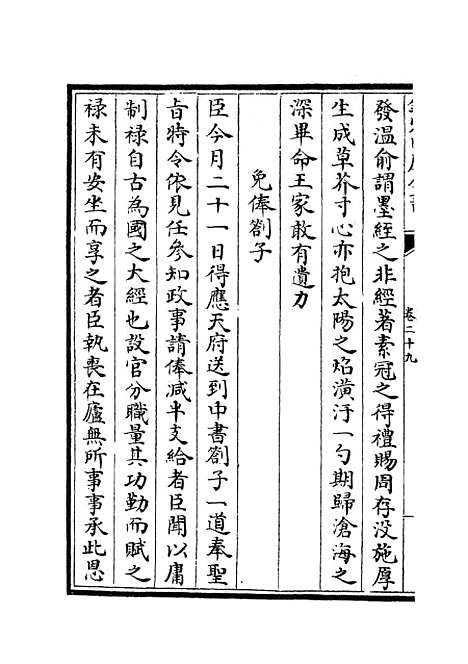 卷二十九
發溫俞謂墨絰之非經著素冠之得禮賜周存没施厚
生成草芥寸心亦抱太陽之焰潢汙一勺期歸滄海之
深畢命王家敢有遺力
免俸劄子
臣今月二十一日得應天府送到中書劄子一道奉聖
㫖特令依見任參知政事請俸減半支給者臣聞以庸
制禄自古為國之大經也設官分職量其功勤而賦之
禄未有安坐而享之者臣執喪在廬無所事事承此恩